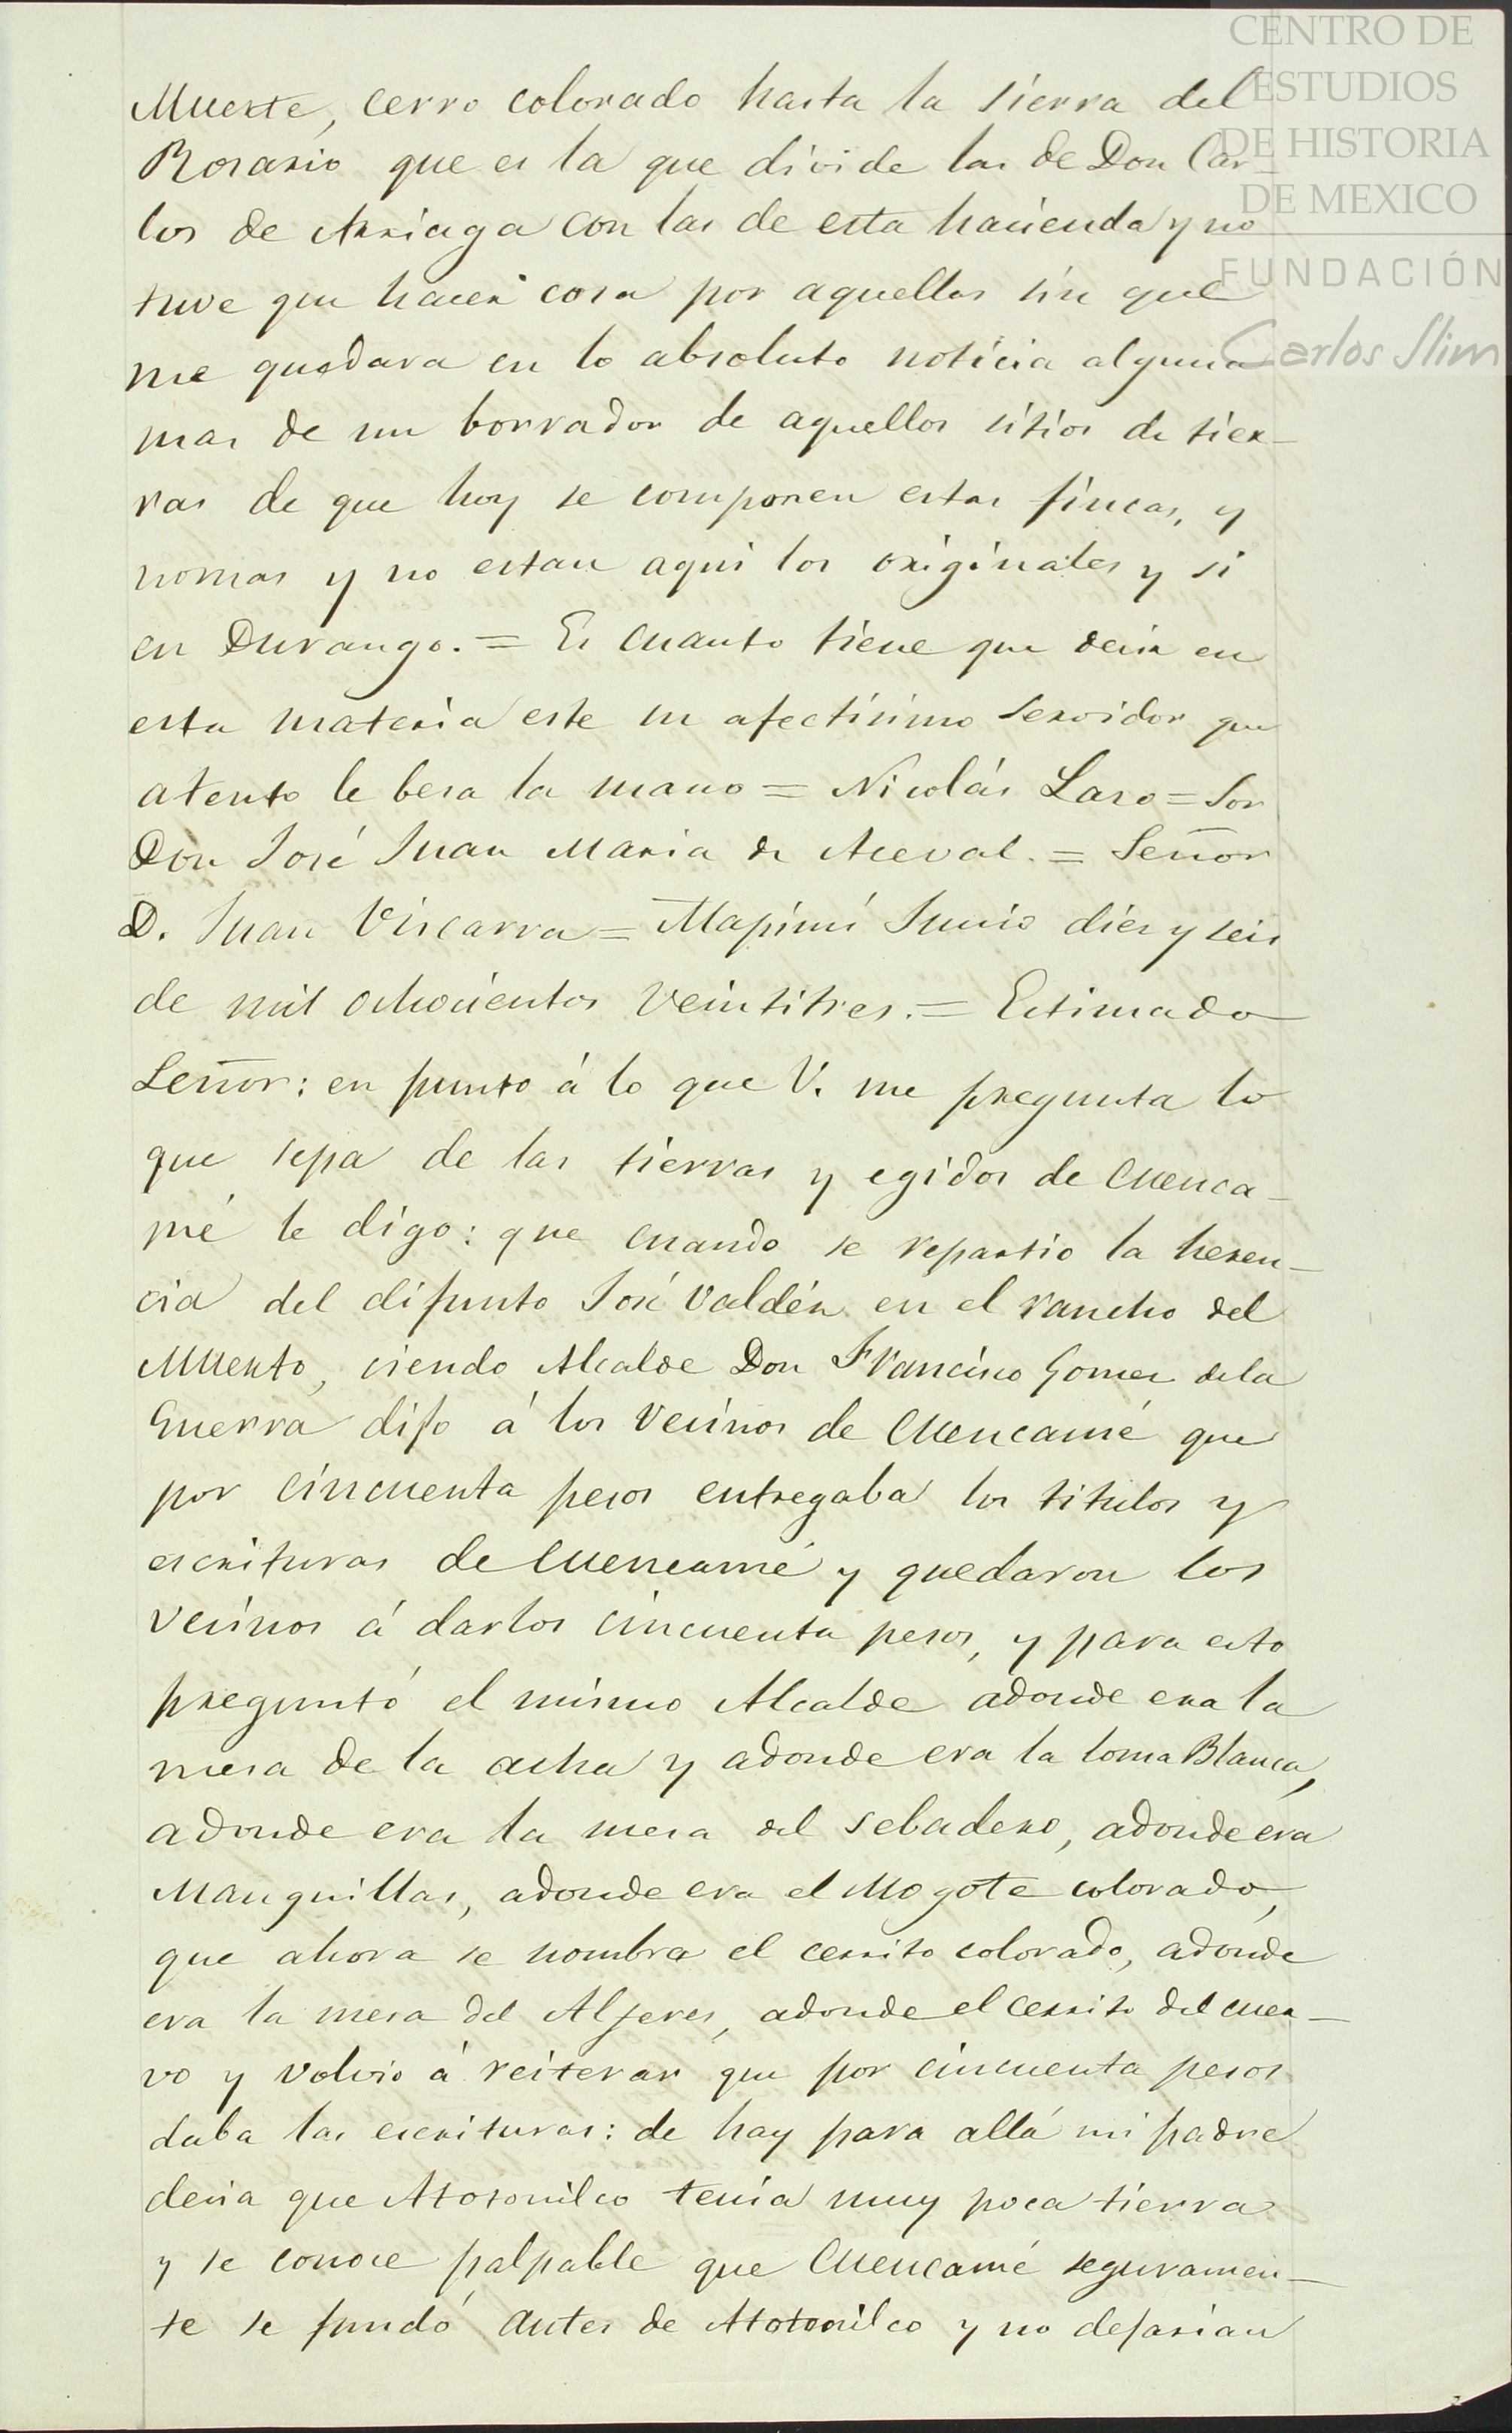 CENTRO DE
ESTUDIOS
DE HISTORIA
DE MEXICO
FUNDACIÓN
Carlos Slim
Muerte, cerro colorado hasta la sierra del
Rosario que es la que divide las de Don Car-
los de Arriaga con las de esta hacienda y no
tuve que hacer cosa por aquellas sin que
me quedara en lo absoluto noticia alguna
mas de un borrador de aquellos sitios de tier-
ras de que hoy se componen estas fincas, y
nomas y no estan aqui los originales y si
en Durango. = Es cuanto tiene que decir en
esta materia este su afectisimo servidor que
atento le besa la mano = Nicolás Laso = Sor
Don José Juan Maria de Aceval. = Señor
D. Juan Viscarra = Mapimí Junio dies y seis
de mil ochocientos veintitres. = Estimado
Señor: en punto á lo que V. me pregunta lo
que sepa de las tierras y egidos de Cuenca-
mé le digo: que cuando se repartio la heren-
cia del difunto José Valdés en el rancho del
Muerto, siendo Alcalde Don Francisco Gomez de la
Guerra dijo á los vecinos de Cuencamé que
por cincuenta pesos entregaba los titulos y
escrituras de Cuencamé y quedaron los
vecinos á darlos cincuenta pesos, y para esto
preguntó el mismo Alcalde adonde era la
mesa de la acha y adonde era la loma Blanca,
adonde era la mesa del sebadero, adonde era
Manguillas, adonde era el Mogote colorado,
que ahora se nombra el cerrito colorado, adonde
era la mesa del Alferes, adonde el cerrito del cuer-
vo y volvio á reiterar que por cincuenta pesos
daba las escrituras: de hay para allá mi padre
decia que Atotonilco tenia muy poca tierra
y se conoce palpable que Cuencamé seguramen-
te se fundó antes de Atotonilco y no dejarian